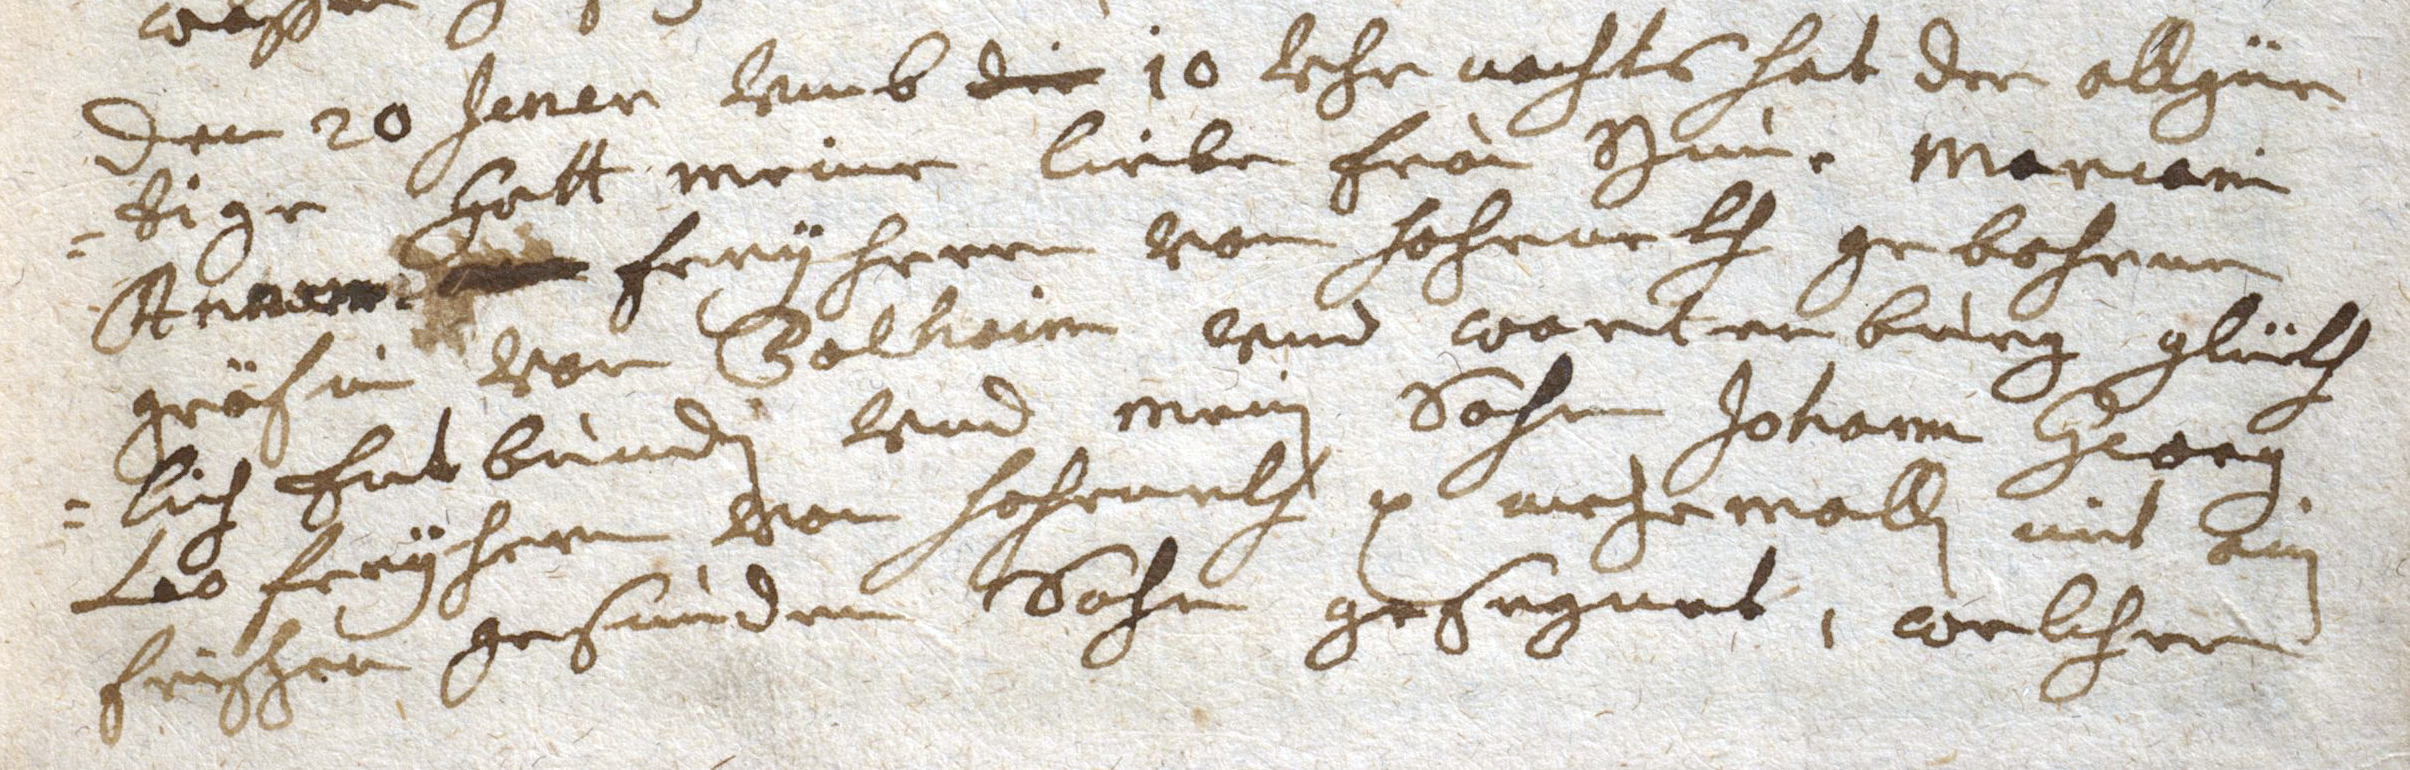 den 20 Jener vmb die 10 Vhr nachts hat der allgüe
=tige Gott meine liebe frau Schnür Mariam
Annam freÿherrn von hoheneckh gebohrne
gräfin von Polhaim vnd wartenburg glückh
=lich Entbunden vnd mein Sohn Johann Georg
Leo freÿherrn von hoheneckh mehrmallen mit ein
frischen gesunden Sohn gesegnet, welcher